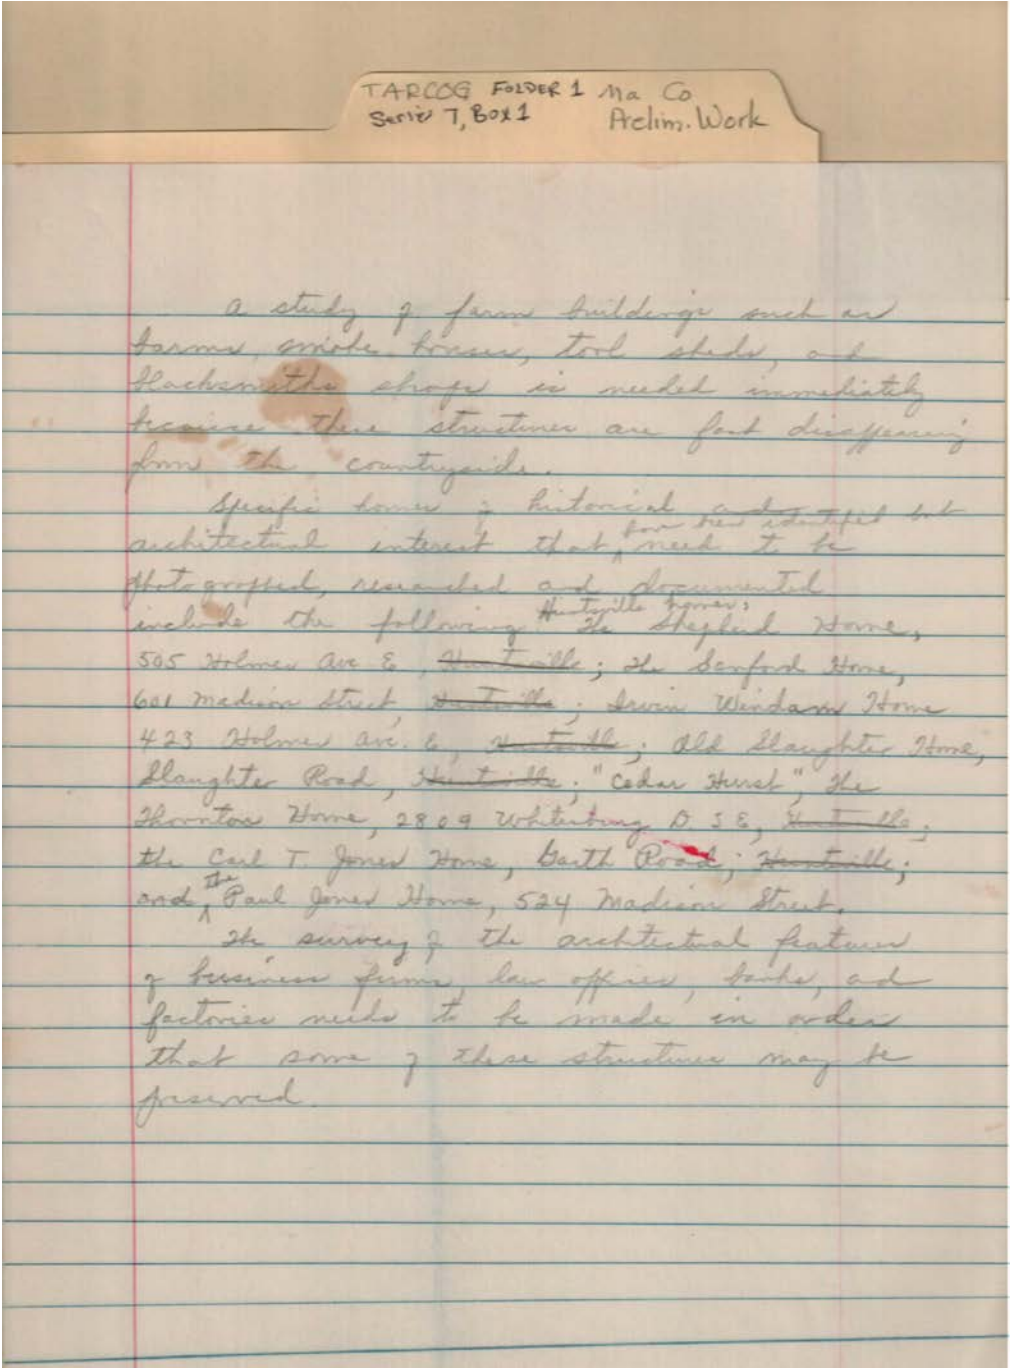 TARCOG FOLDER 1 Ma Co
Series 7, Box 1 Prelim. Work
A study of farm buildings such as
barns, smoke houses, tool sheds, and
blacksmiths shops is needed immediately
because these structures are fast disappearing
from the countryside.
Specific homes of historical and
have been identified but
architectural interest that ^ need to be
photographed, researched and documented
Huntsville homes:
include the following The Shepherd Home,
505 Holmes Ave E, Huntsville; The Sanford Home,
601 Madison Street, Huntsville; Irvin Windam Home
423 Holmes Ave. E, Huntsville; Old Slaughter Home,
Slaughter Road, Huntsville; "Cedar Hurst", The
Thornton Home, 2809 Whitesburg D. S E, Huntsville;
the Carl T. Jones Home, Garth Road; Huntsville;
the
and ^ Paul Jones Home, 524 Madison Street.
The survey of the architectual features
of business firms, law offices, banks, and
factories needs to be made in order
that some of these structures may be
preserved.